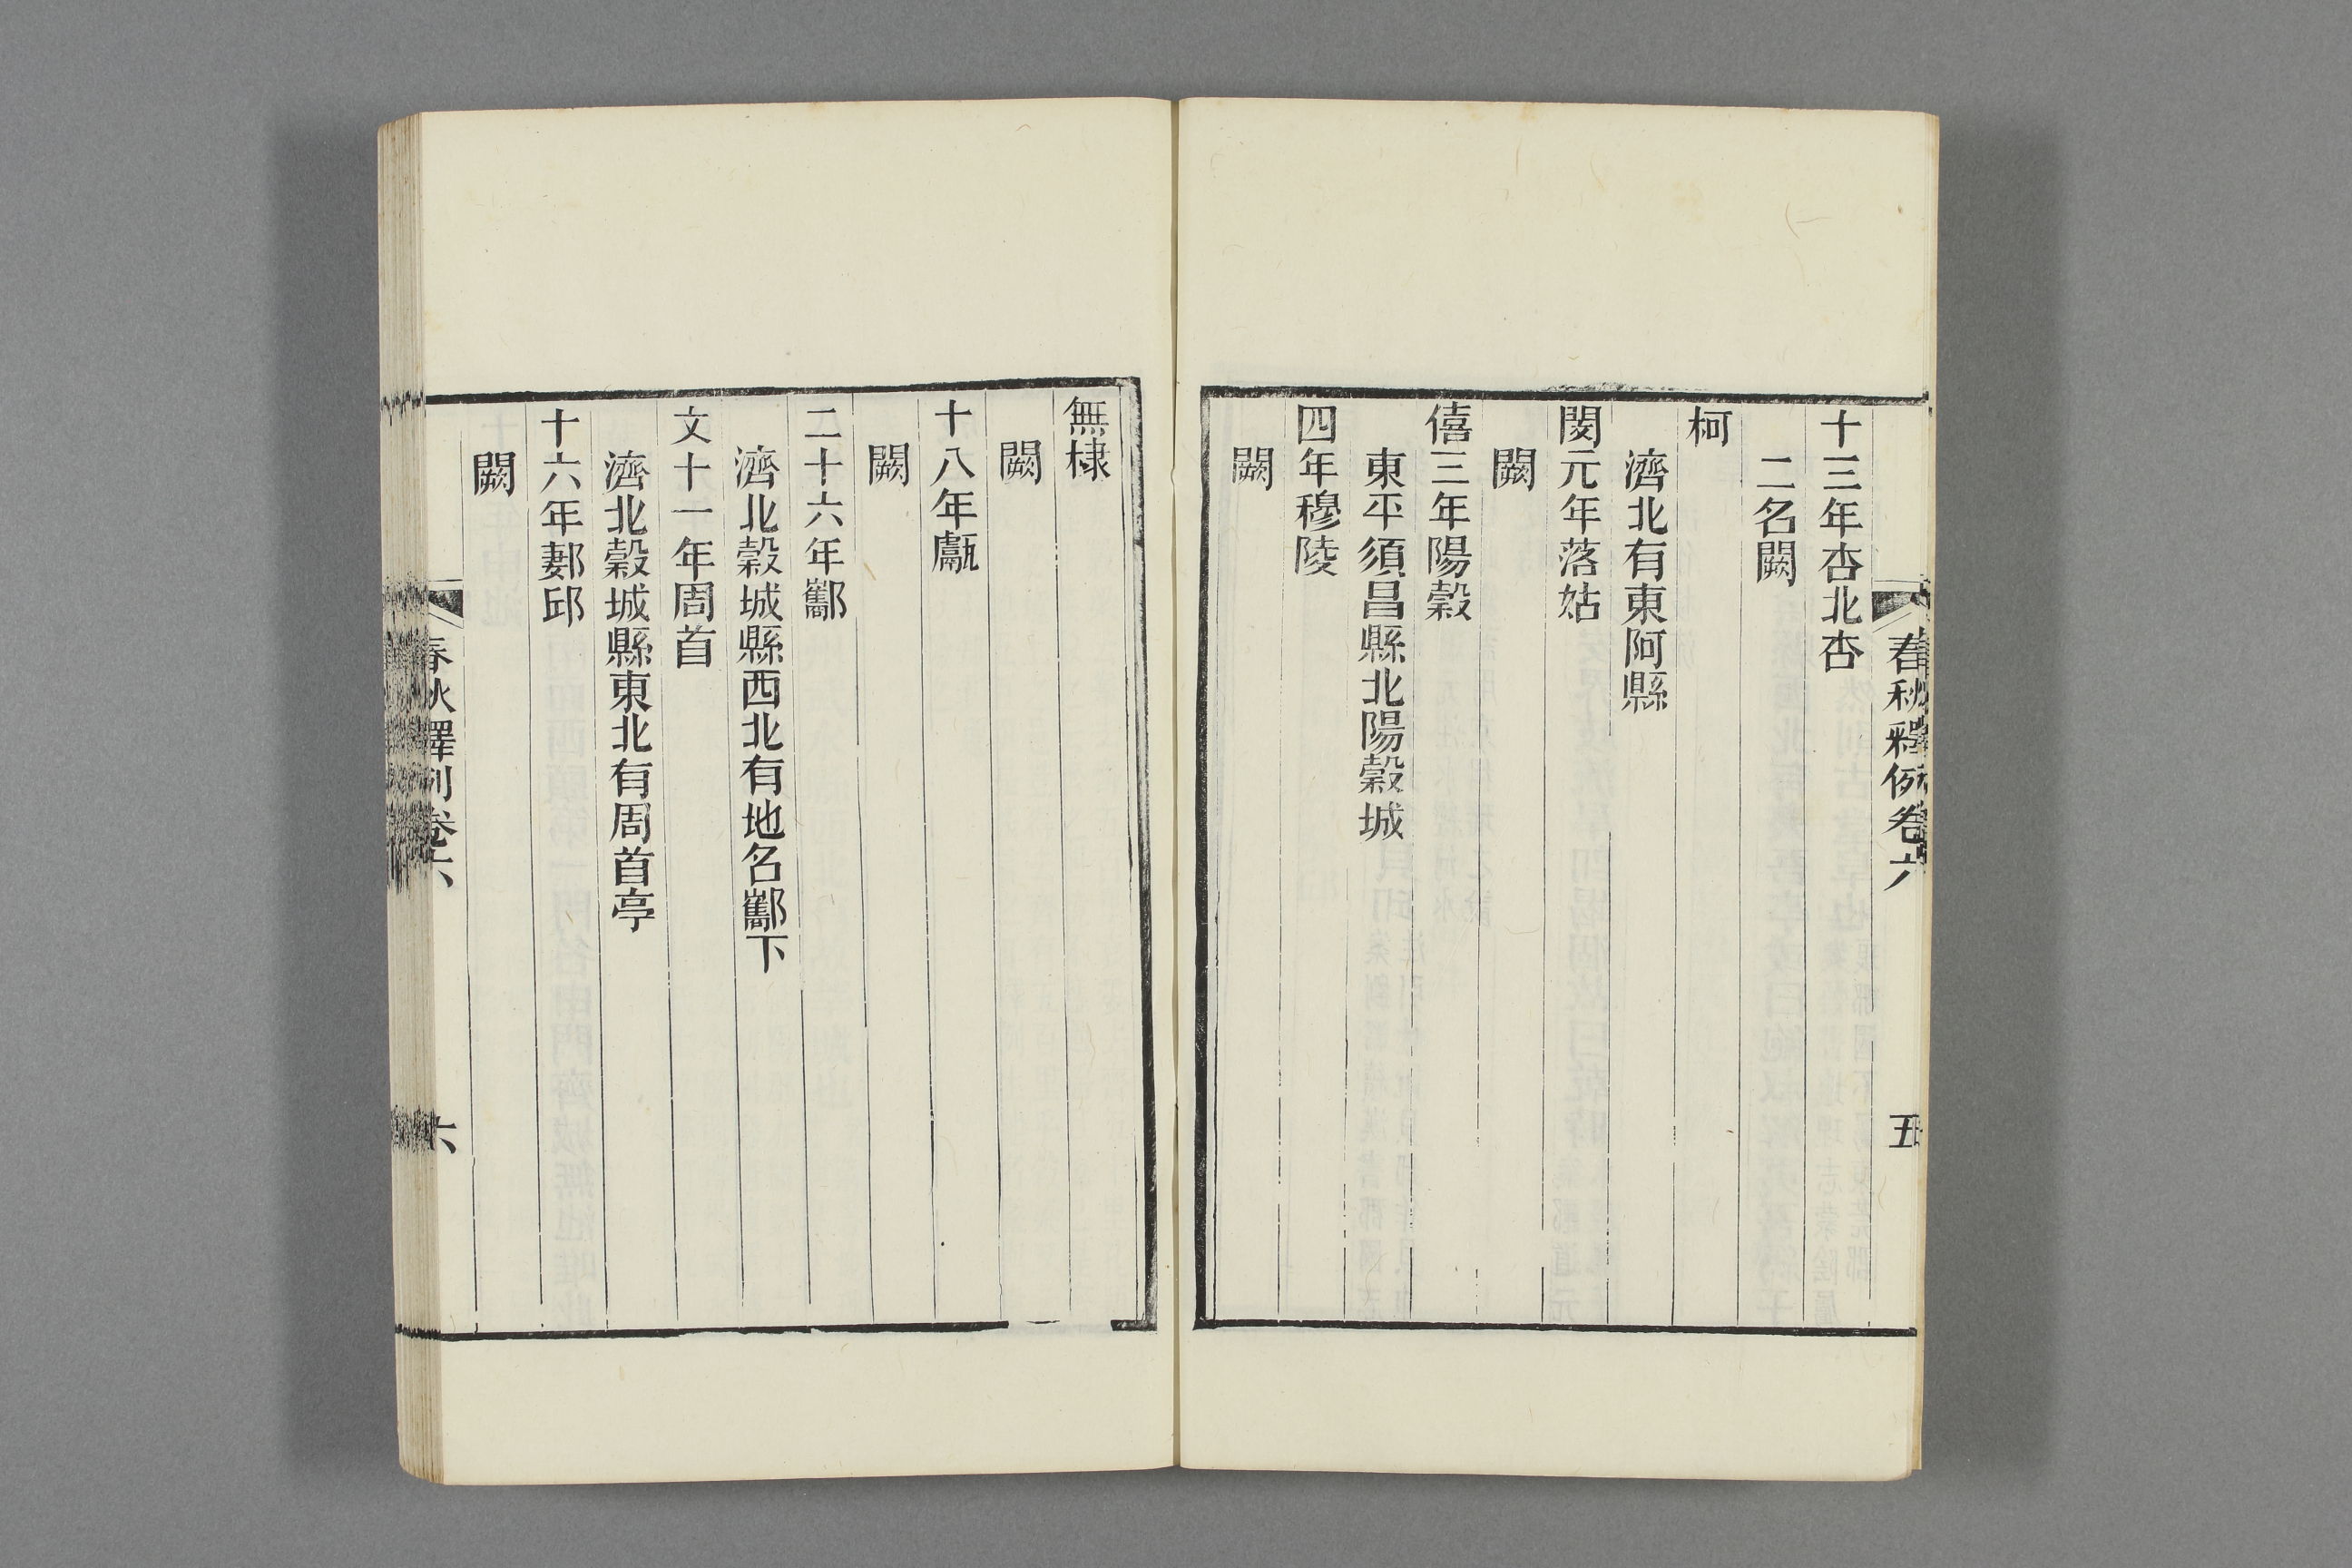 春秋釋例卷六
五
十三年杏北杏
二名闕
柯
濟北有東阿縣
閔元年落姑
闕
僖三年陽穀
東平須昌縣北陽穀城
四年穆陵
闕
無棣
闕
十八年甗
闕
二十六年酅
濟北穀城縣西北有地名酅下
文十一年周首
濟北穀城縣東北有周首亭
十六年郪邱
闕
春秋釋例卷六
六